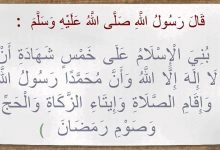 قَالَ رَسُولُ اللَّهِ صَلَّى اللَّهُ عَلَيْهِ وَسَلَّمَ :
بُنِيَ الْإِسْلَامُ عَلَى خَمْسٍ شَهَادَةِ أَنْ
لَا إِلَهَ إِلَّا اللَّهُ وَأَنَّ مُحَمَّدًا رَسُولُ اللَّهِ
وَإِقَامِ الصَّلَاةِ وَإِيتَاءِ الزَّكَاةِ وَالْحَجِّ
وَصَوْمِ رَمَضَانَ )